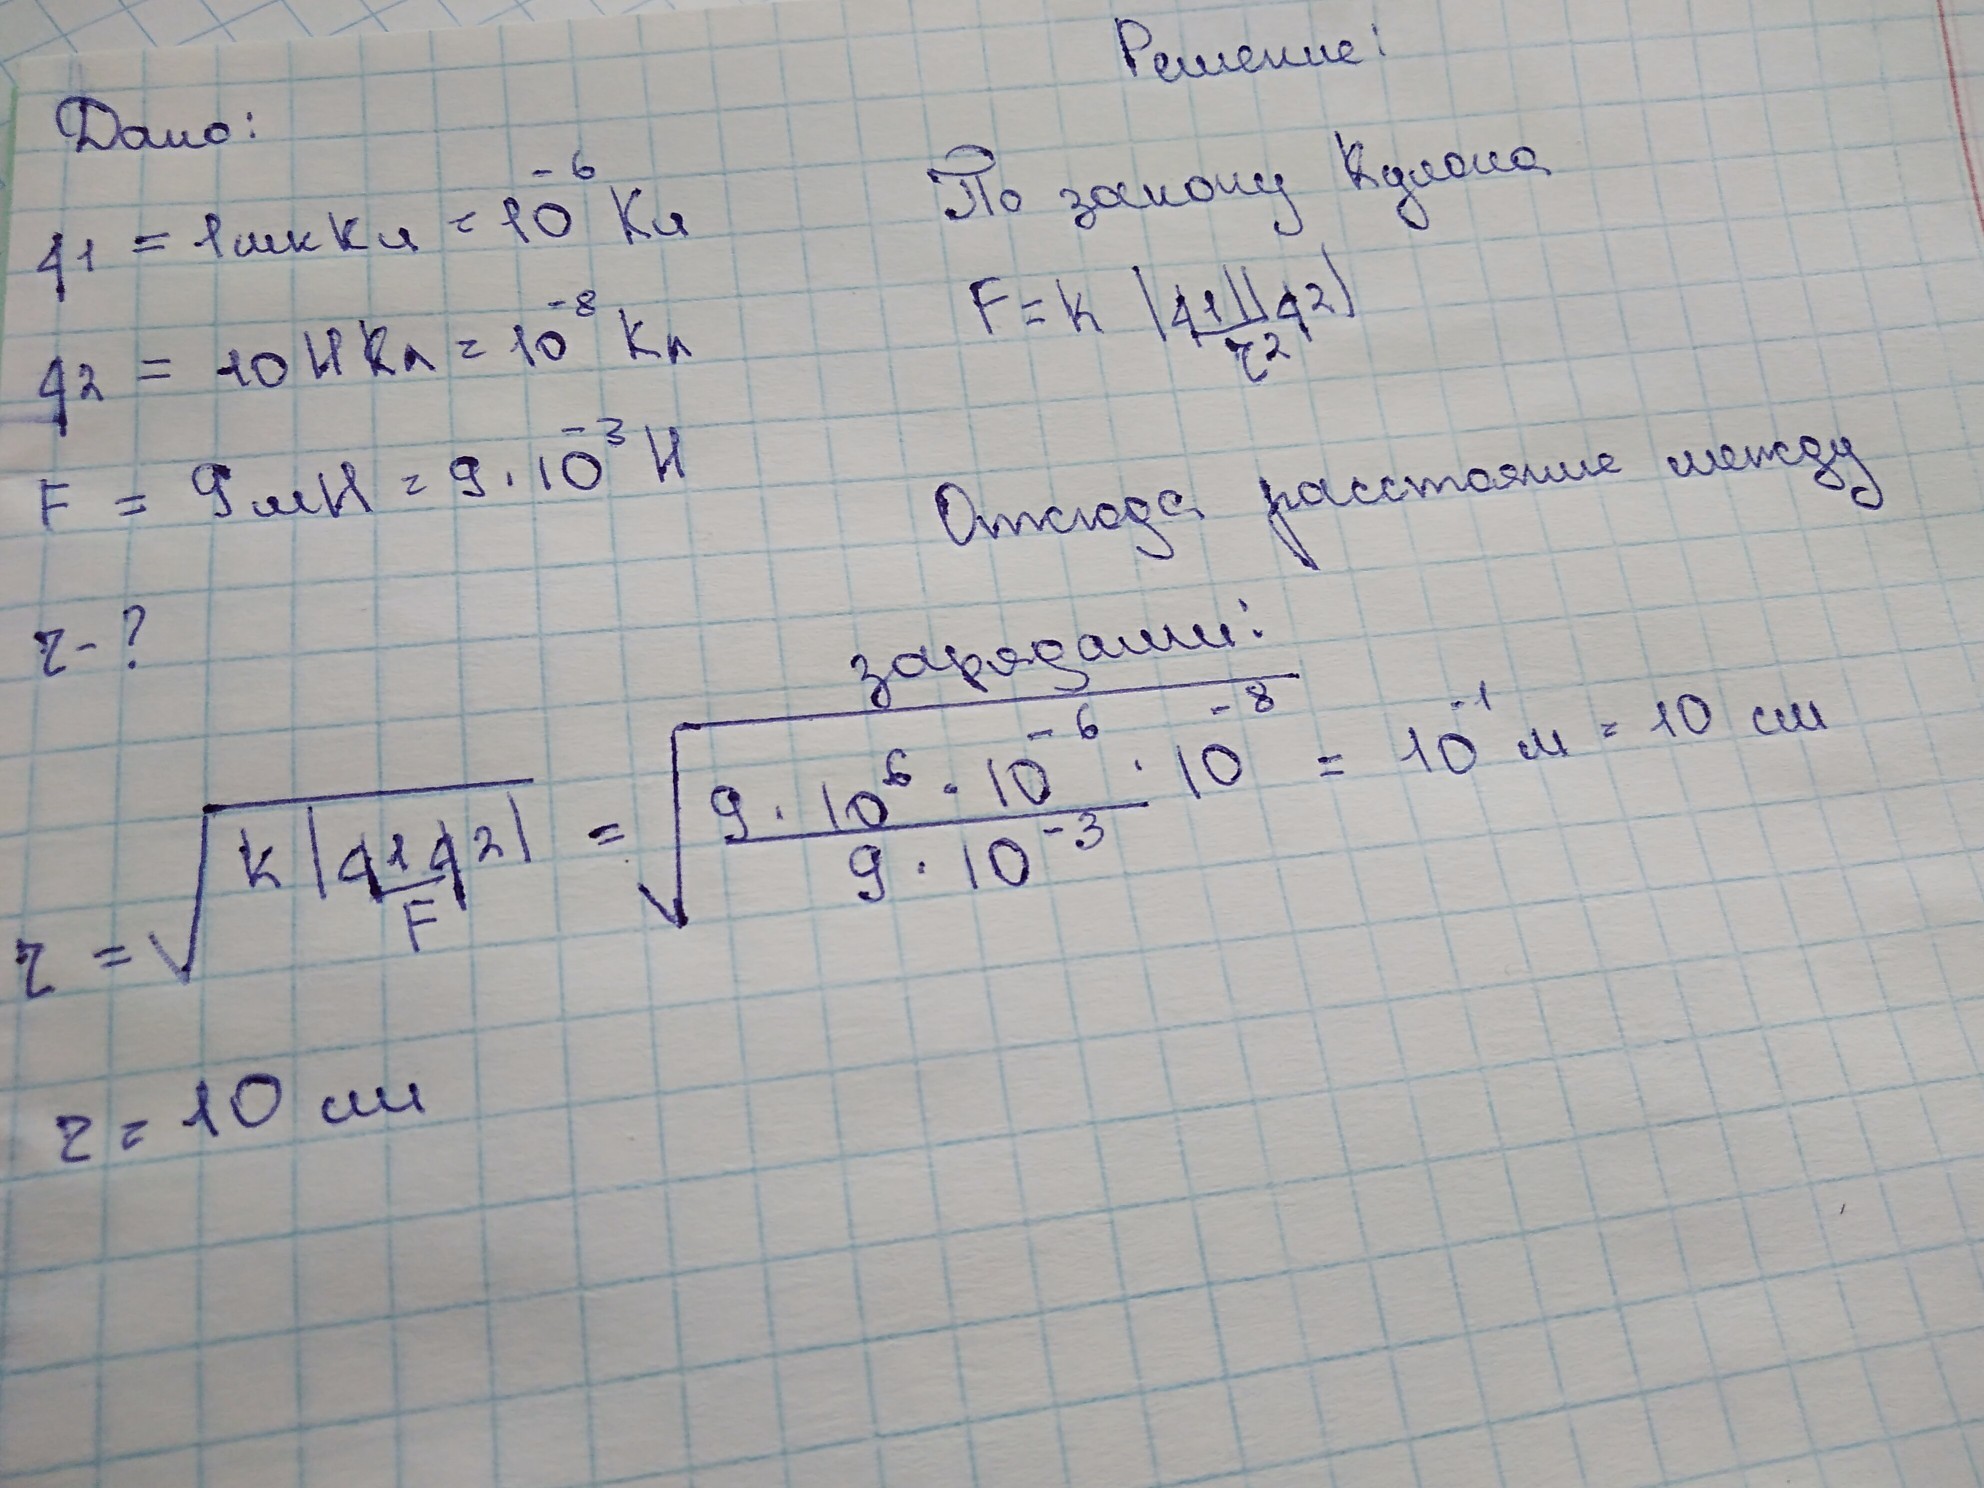 Дано:
q1 = 1мкКл = 10⁻⁶ Кл
q2 = 10НКл = 10⁻⁸ Кл
F = 9мН = 9·10⁻³ Н
r-?
Решение:
По закону Кулона
F = K |q1||q2| / r²
Отсюда расстояние между
зарядами:
r = √(k|q1q2| / F) = √(9·10⁶·10⁻⁶·10⁻⁸ / 9·10⁻³) = 10⁻¹ м = 10 см
r = 10 см